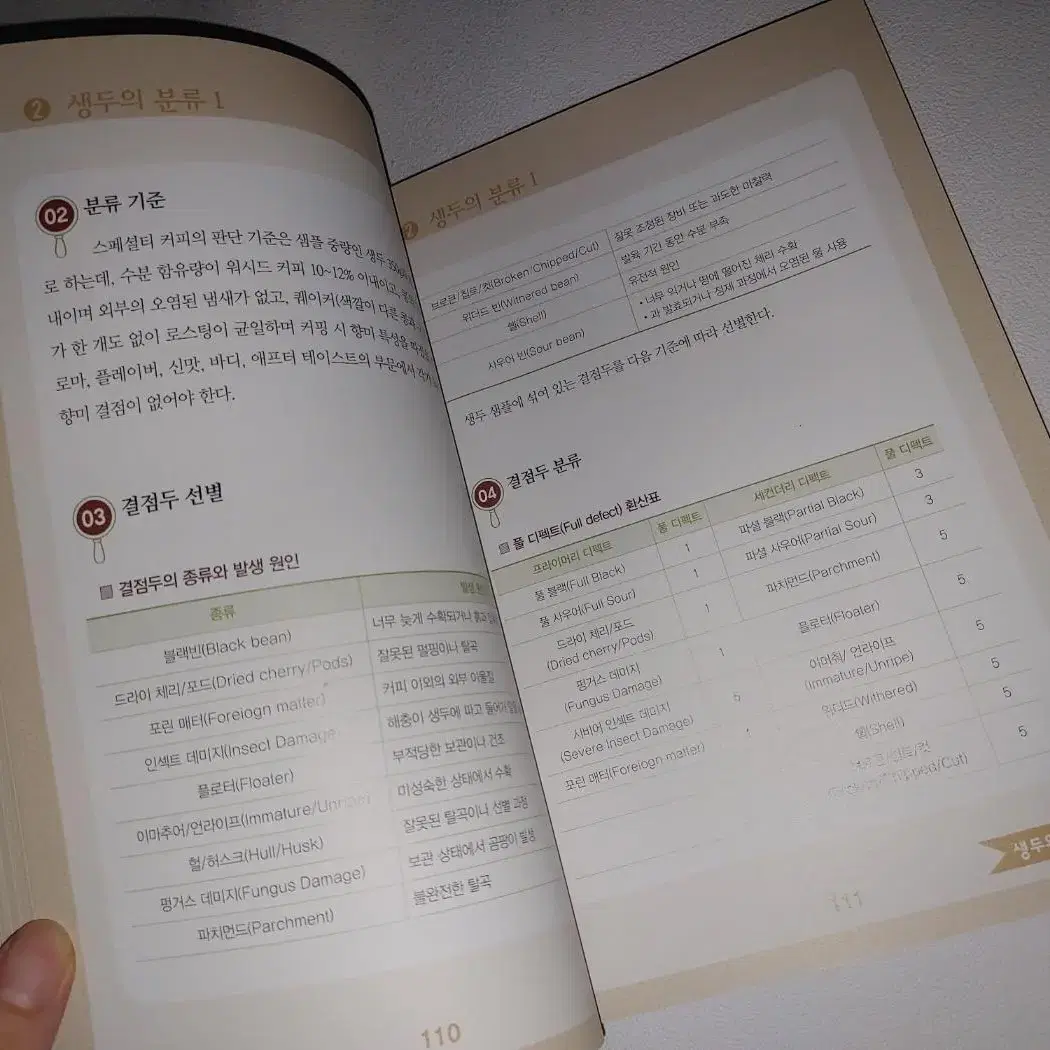 2 생두의 분류 1
02 분류 기준
스페셜티 커피의 판단 기준은 샘플 중량인 생두
로 하는데, 수분 함유량이 워시드 커피 10~12% 이내이고,
내이며 외부의 오염된 냄새가 없고, 퀘이커(색깔이 다른
가 한 개도 없이 로스팅이 균일하며 커핑 시 향미 특성을
로마, 플레이버, 신맛, 바디, 애프터 테이스트의 부문에서 각기
향미 결점이 없어야 한다.
03 결점두 선별
결점두의 종류와 발생 원인
종류
블랙빈(Black bean) 너무 늦게 수확되거나 흙과
드라이 체리/포드(Dried cherry/Pods) 잘못된 펄핑이나 탈곡
포린 매터(Foreiogn matter) 커피 이외의 외부 이물질
인섹트 데미지(Insect Damage) 해충이 생두에 파고 들어가
플로터(Floater) 부적당한 보관이나 건조
이마추어/언라이프(Immature/Unripe) 미성숙한 상태에서 수확
헐/허스크(Hull/Husk) 잘못된 탈곡이나 선별 과정
펑거스 데미지(Fungus Damage) 보관 상태에서 곰팡이 발생
파치먼드(Parchment) 불완전한 탈곡
110
2 생두의 분류 1
브로큰/칩트/컷(Broken/Chipped/Cut) 잘못 조정된 장비 또는 과도한 마찰력
위더드 빈(Withered bean) 발육 기간 동안 수분 부족
쉘(Shell) 유전적 원인
사우어 빈(Sour bean) • 너무 익거나 땅에 떨어진 체리 수확
• 과 발효되거나 정제 과정에서 오염된 물 사용
생두 샘플에 섞여 있는 결점두를 다음 기준에 따라 선별한다.
04 결점두 분류
풀 디펙트(Full defect) 환산표
프라이머리 디펙트 풀 디펙트 세컨더리 디펙트 풀 디펙트
풀 블랙(Full Black) 1 파셜 블랙(Partial Black) 3
풀 사우어(Full Sour) 1 파셜 사우어(Partial Sour) 3
드라이 체리/포드
(Dried cherry/Pods) 1 파치먼드(Parchment) 5
펑거스 데미지
(Fungus Damage) 1 플로터(Floater) 5
시비어 인섹트 데미지
(Severe Insect Damage) 5 이머춰/ 언라이프
(Immature/Unripe) 5
포린 매터(Foreiogn matter) 1 위더드(Withered) 5
쉘(Shell) 5
/Cut) 5
111